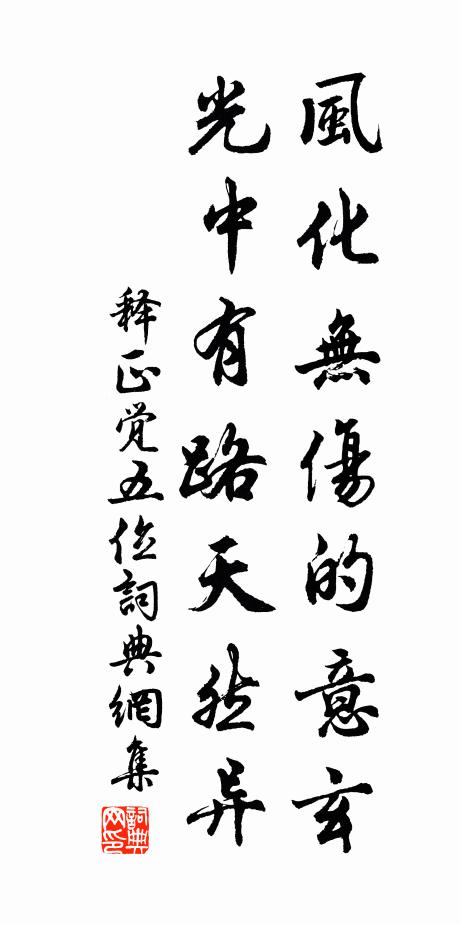 風化無傷的意玄
光中有路天然异
释正觉五位詞典網集
詞典网印